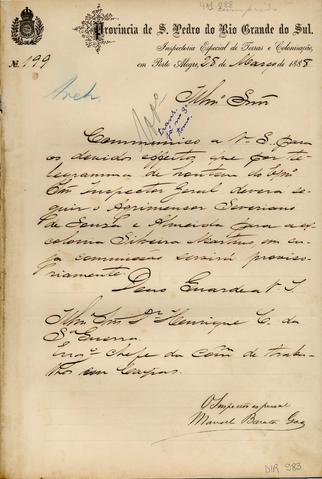 Provincia de S. Pedro do Rio Grande do Sul.
Inspectoria Especial de Terras e Colonisação,
Nº 199 em Porto Alegre, 28 de Março de 1888
Arch.
Illmo Snr
Communico a V. S. para
os devidos effeitos que por te-
legramma de hontem do
Inspector Geral deverá se-
guir o Agrimensor Severiano
de Souza e Almeida para a ex-
colonia Silveira Martins em cu-
ja commissão servirá proviso-
riamente.
Deus Guarde a V. S.
Illmo Snr Dr Henrique C. da
Sa Guerra.
Chefe da Comm de traba-
lhos em
O Inspector especial
Manoel Barata
DIR 983